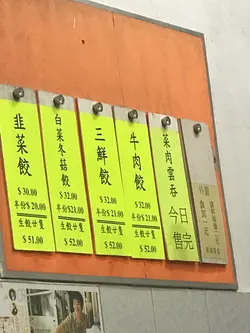 韭菜餃
$30.00
半份$20.00
生餃廿隻
$51.00
白菜冬菇餃
$32.00
半份$21.00
生餃廿隻
$52.00
三鮮餃
$32.00
半份$21.00
生餃廿隻
$52.00
牛肉餃
$32.00
半份$21.00
生餃廿隻
$52.00
菜肉雲吞
今日
售完
外賣